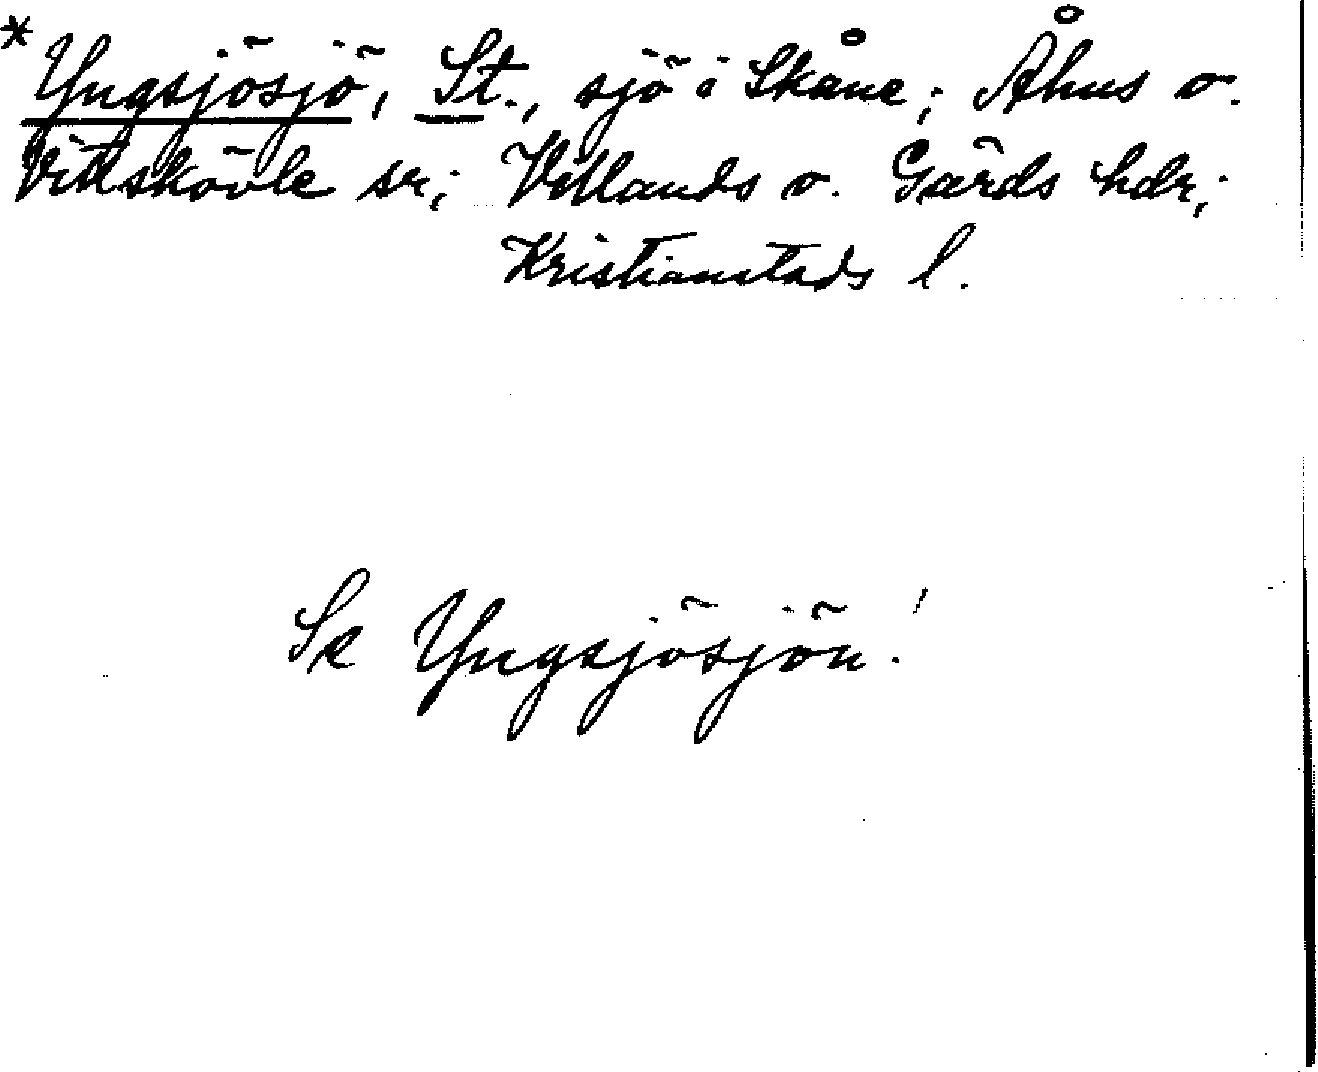 *Yngsjösjö, St., sjö i Skåne; Åhus o.
Vittskövle sr; Villands o. Gärds hdr;
Kristianstads l.
Se Yngsjösjön!